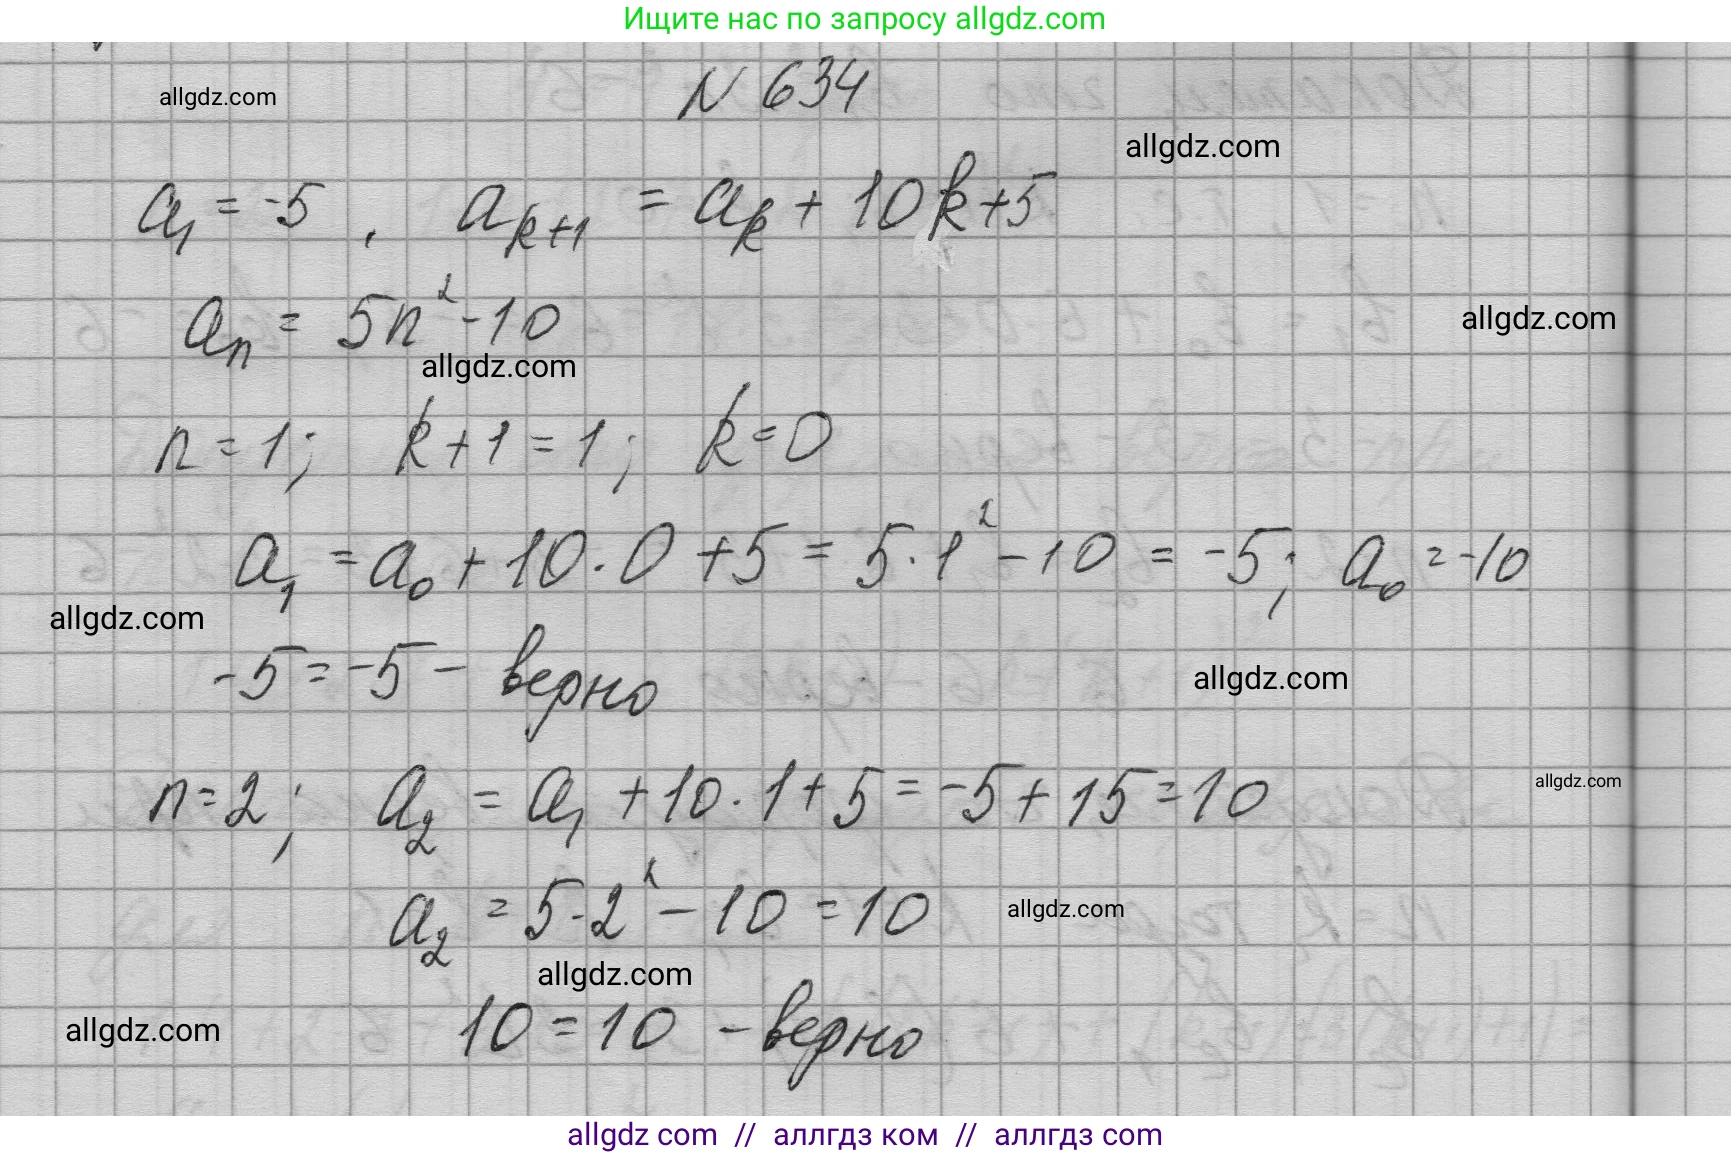 Ищите нас по запросу allgdz.com
N 634
allgdz.com
allgdz.com
a₁ = -5, aₖ₊₁ = aₖ + 10k + 5
aₙ = 5n² - 10
allgdz.com
allgdz.com
n = 1; k + 1 = 1; k = 0
a₁ = a₀ + 10 · 0 + 5 = 5 · 1² - 10 = -5; a₀ = -10
allgdz.com
-5 = -5 - верно
allgdz.com
n = 2; a₂ = a₁ + 10 · 1 + 5 = -5 + 15 = 10
allgdz.com
a₂ = 5 · 2² - 10 = 10
allgdz.com
allgdz.com
10 = 10 - верно
allgdz.com
allgdz com // аллгдз ком // аллгдз com